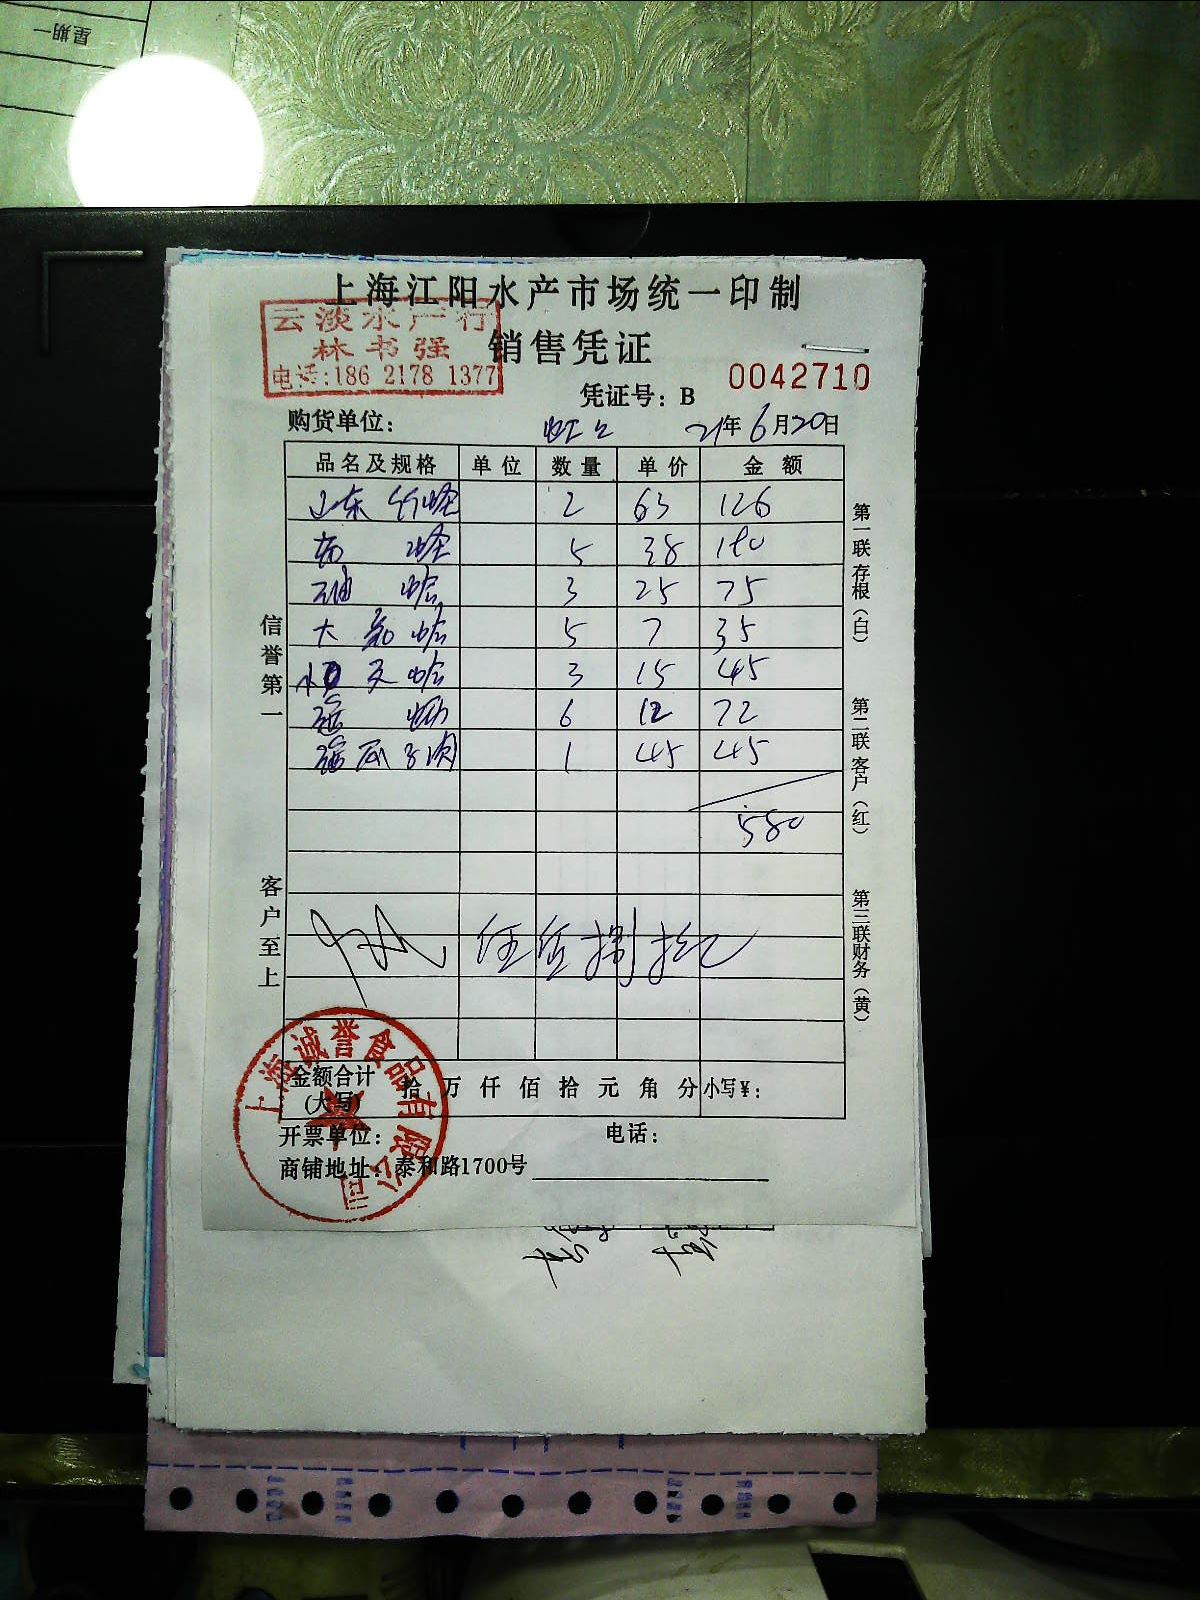 星期一
上海江阳水产市场统一印制
云淡水产行
林书强
电话:186 2178 1377
销售凭证
凭证号：B 0042710
购货单位： 21年6月20日
品名及规格 单位 数量 单价 金额
山东竹蛏 2 63 126
蛏 5 38 180
蛤 3 25 75
大 蛤 5 7 35
蛤 3 15 45
6 12 72
1 45 45
580
伍佰捌拾元
信誉第一
客户至上
第一联存根（白）
第二联客户（红）
第三联财务（黄）
金额合计（大写） 拾 万 仟 佰 拾 元 角 分 小写¥：
上海诚誉食品有限公司
开票单位： 电话：
商铺地址：泰和路1700号